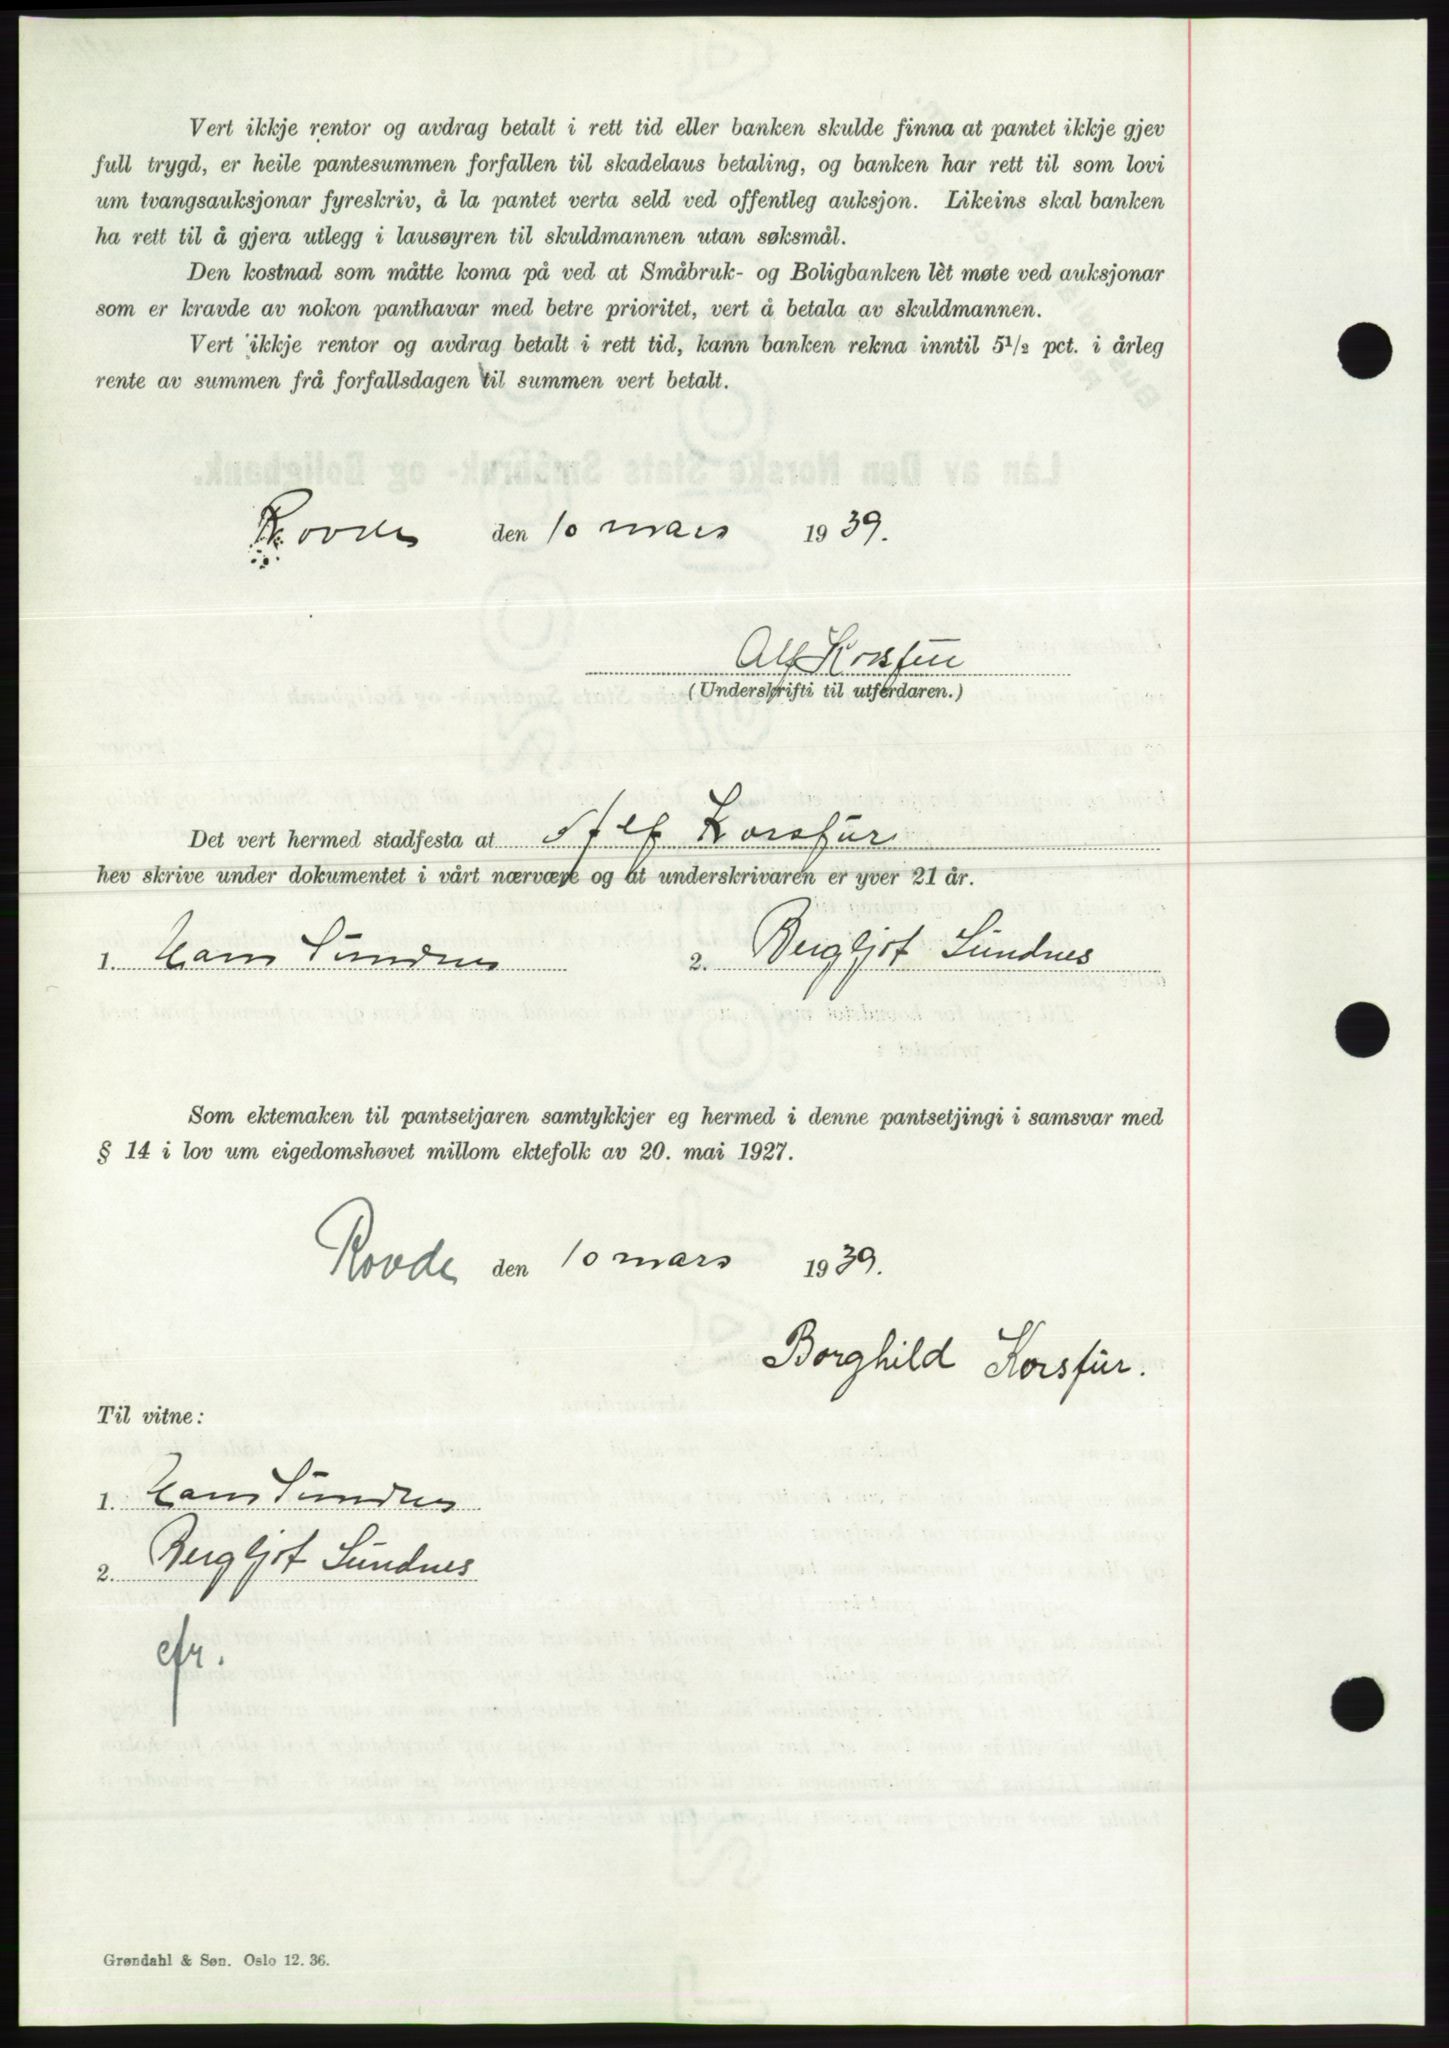 Vert ikkje rentor og avdrag betalt i rett tid eller banken skulde finna at pantet ikkje gjev
full trygd, er heile pantesummen forfallen til skadelaus betaling, og banken har rett til som lovi
um tvangsauksjonar fyreskriv, å la pantet verta seld ved offentleg auksjon. Likeins skal banken
ha rett til å gjera utlegg i lausøyren til skuldmannen utan søksmål.
Den kostnad som måtte koma på ved at Småbruk- og Boligbanken lèt møte ved auksjonar
som er kravde av nokon panthavar med betre prioritet, vert å betala av skuldmannen.
Vert ikkje rentor og avdrag betalt i rett tid, kann banken rekna inntil 5½ pct. i årleg
rente av summen frå forfallsdagen til summen vert betalt.
Rovde den 10 mars 1939.
Alf Korsfur
(Underskrifti til utferdaren.)
Det vert hermed stadfesta at Alf Korsfur
hev skrive under dokumentet i vårt nærvære og at underskrivaren er yver 21 år.
1. Hans Sundnes 2. Bergljot Sundnes
Som ektemaken til pantsetjaren samtykkjer eg hermed i denne pantsetjingi i samsvar med
§ 14 i lov um eigedomshøvet millom ektefolk av 20. mai 1927.
Rovde den 10 mars 1939.
Borghild Korsfur.
Til vitne:
1. Hans Sundnes
2. Bergljot Sundnes
efr.
Grøndahl & Søn. Oslo 12. 36.